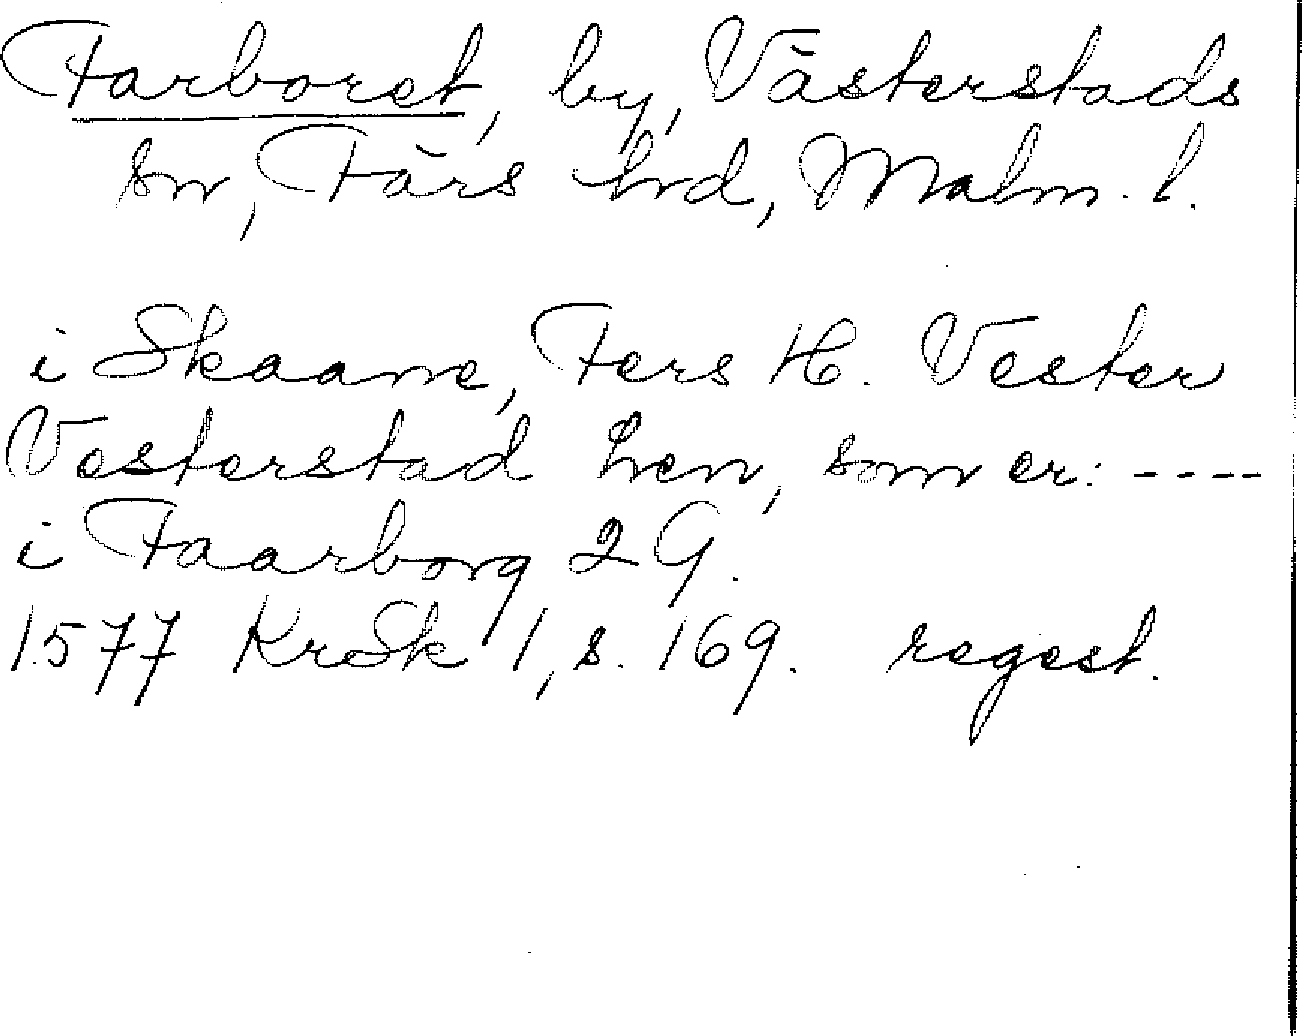 Farboret, by, Västerstads
sn, Färs hrd, Malm. l.
i Skaane, Fers H. Vester
Vesterstad Len, som er: ----
i Faarborg 2 G.
1577 KrSk 1, s. 169. regest.